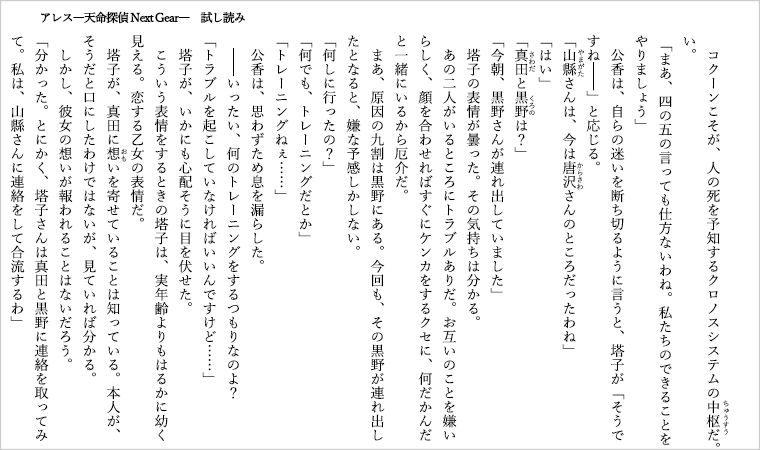 アレス―天命探偵 Next Gear―　試し読み
　コクーンこそが、人の死を予知するクロノスシステムの中枢だ。
い。
「まあ、四の五の言っても仕方ないわね。私たちのできることを
やりましょう」
　公香は、自らの迷いを断ち切るように言うと、塔子が「そうで
すね――」と応じる。
「山縣さんは、今は唐沢さんのところだったわね」
「はい」
「真田と黒野は？」
「今朝、黒野さんが連れ出していました」
　塔子の表情が曇った。その気持ちは分かる。
　あの二人がいるところにトラブルありだ。お互いのことを嫌い
らしく、顔を合わせればすぐにケンカをするクセに、何だかんだ
と一緒にいるから厄介だ。
　まあ、原因の九割は黒野にある。今回も、その黒野が連れ出し
たとなると、嫌な予感しかしない。
「何しに行ったの？」
「何でも、トレーニングだとか」
「トレーニングねぇ……」
　公香は、思わずため息を漏らした。
　――いったい、何のトレーニングをするつもりなのよ？
「トラブルを起こしていなければいいんですけど……」
　塔子が、いかにも心配そうに目を伏せた。
　こういう表情をするときの塔子は、実年齢よりもはるかに幼く
見える。恋する乙女の表情だ。
　塔子が、真田に想いを寄せていることは知っている。本人が、
そうだと口にしたわけではないが、見ていれば分かる。
　しかし、彼女の想いが報われることはないだろう。
「分かった。とにかく、塔子さんは真田と黒野に連絡を取ってみ
て。私は、山縣さんに連絡をして合流するわ」